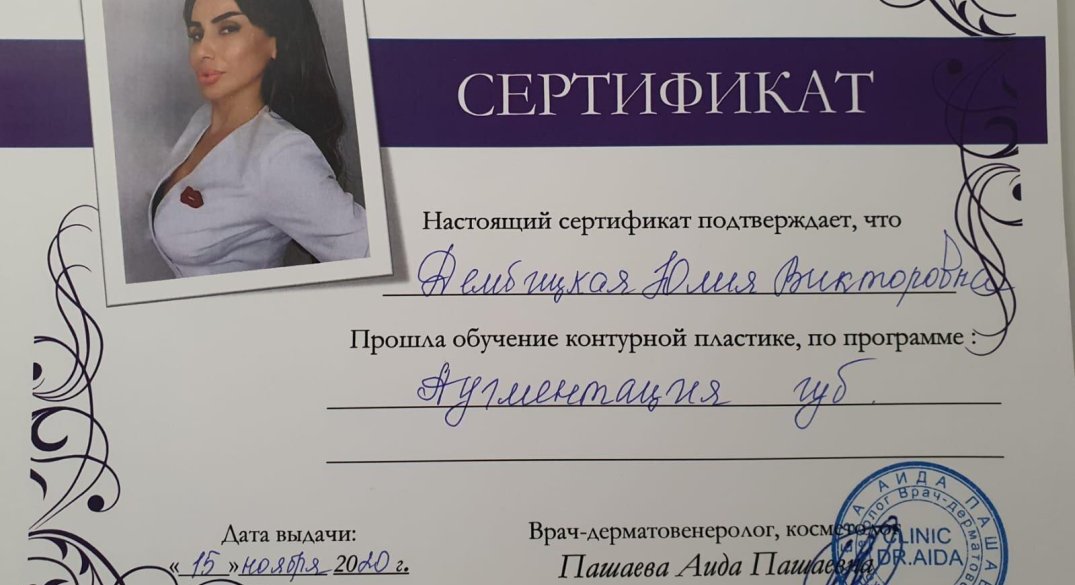 СЕРТИФИКАТ
Настоящий сертификат подтверждает, что
Дембицкая Юлия Викторовна
Прошла обучение контурной пластике, по программе :
Аугментация губ.
Дата выдачи:
« 15 » ноября 2020 г.
Врач-дерматовенеролог, косметолог
Пашаева Аида Пашаевна
АИДА ПАША
Врач-дерматов
CLINIC
DR.AIDA